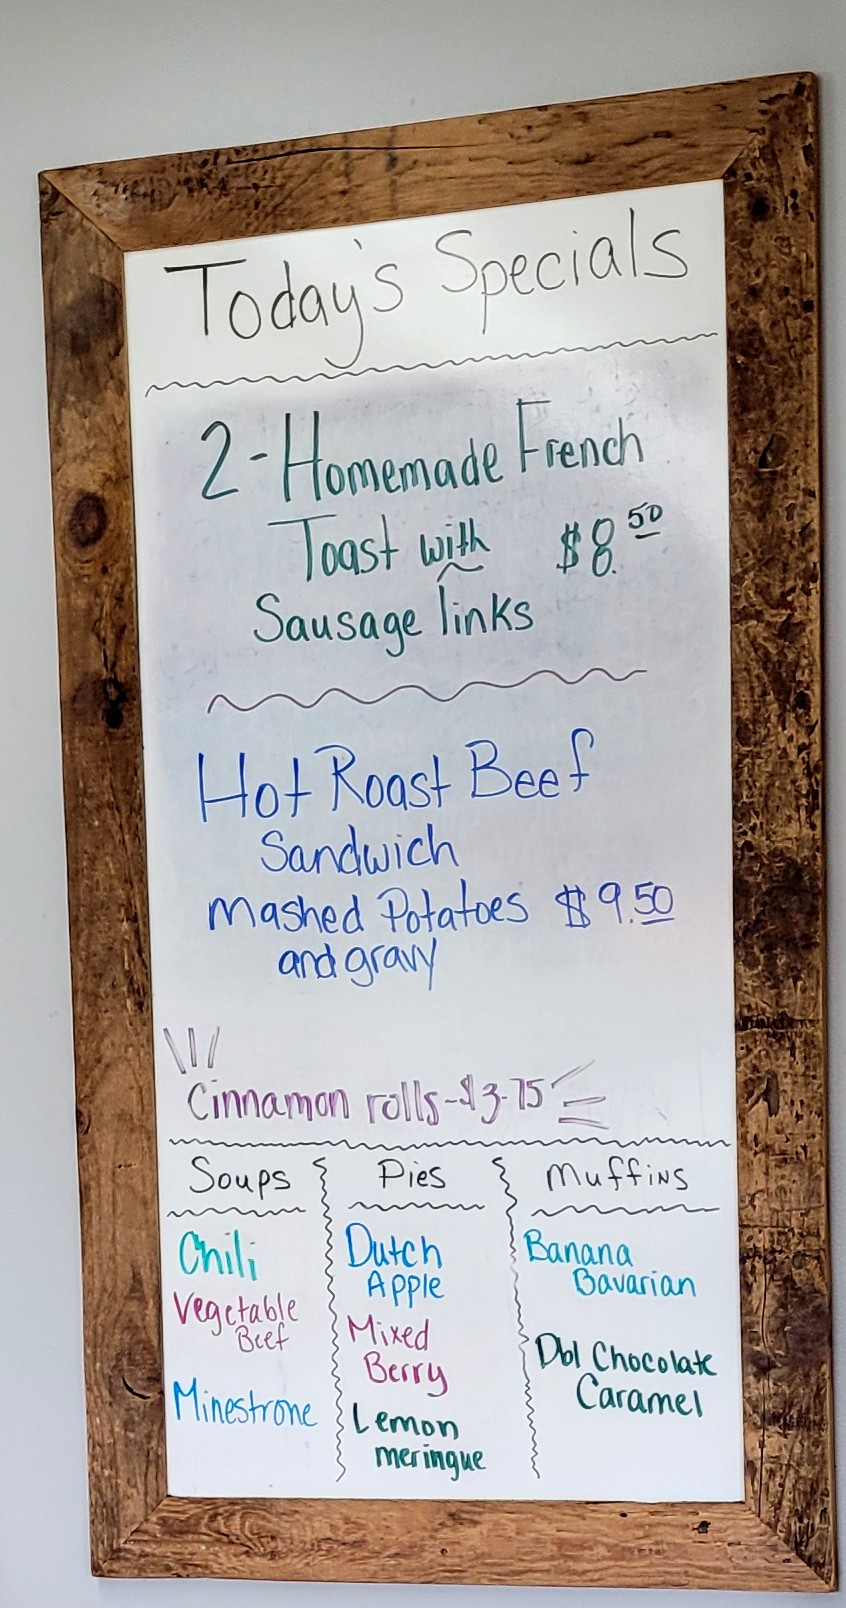 Today's Specials
2-Homemade French
Toast with $8.50
Sausage links
Hot Roast Beef
Sandwich
Mashed Potatoes $9.50
and gravy
Cinnamon rolls-$3.75
Soups
Chili
Vegetable
Beef
Minestrone
Pies
Dutch
Apple
Mixed
Berry
Lemon
meringue
Muffins
Banana
Bavarian
Dbl Chocolate
Caramel